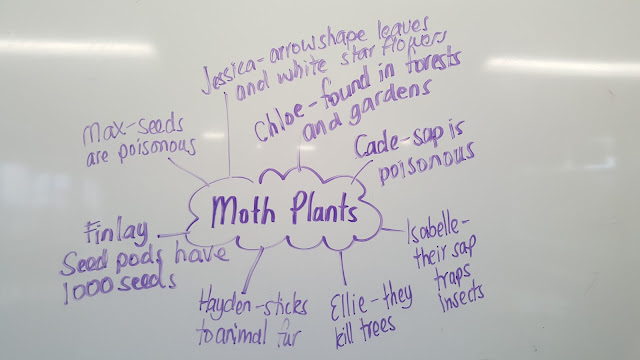 Jessica-arrowshape leaves
and white star flowers
Chloe-found in forests
and gardens
Max-seeds
are poisonous
Cade-sap is
poisonous
Moth Plants
Finlay
Seed pods have
1000 seeds
Isabelle-
their sap
traps
insects
Hayden-sticks
to animal fur
Ellie-they
kill trees